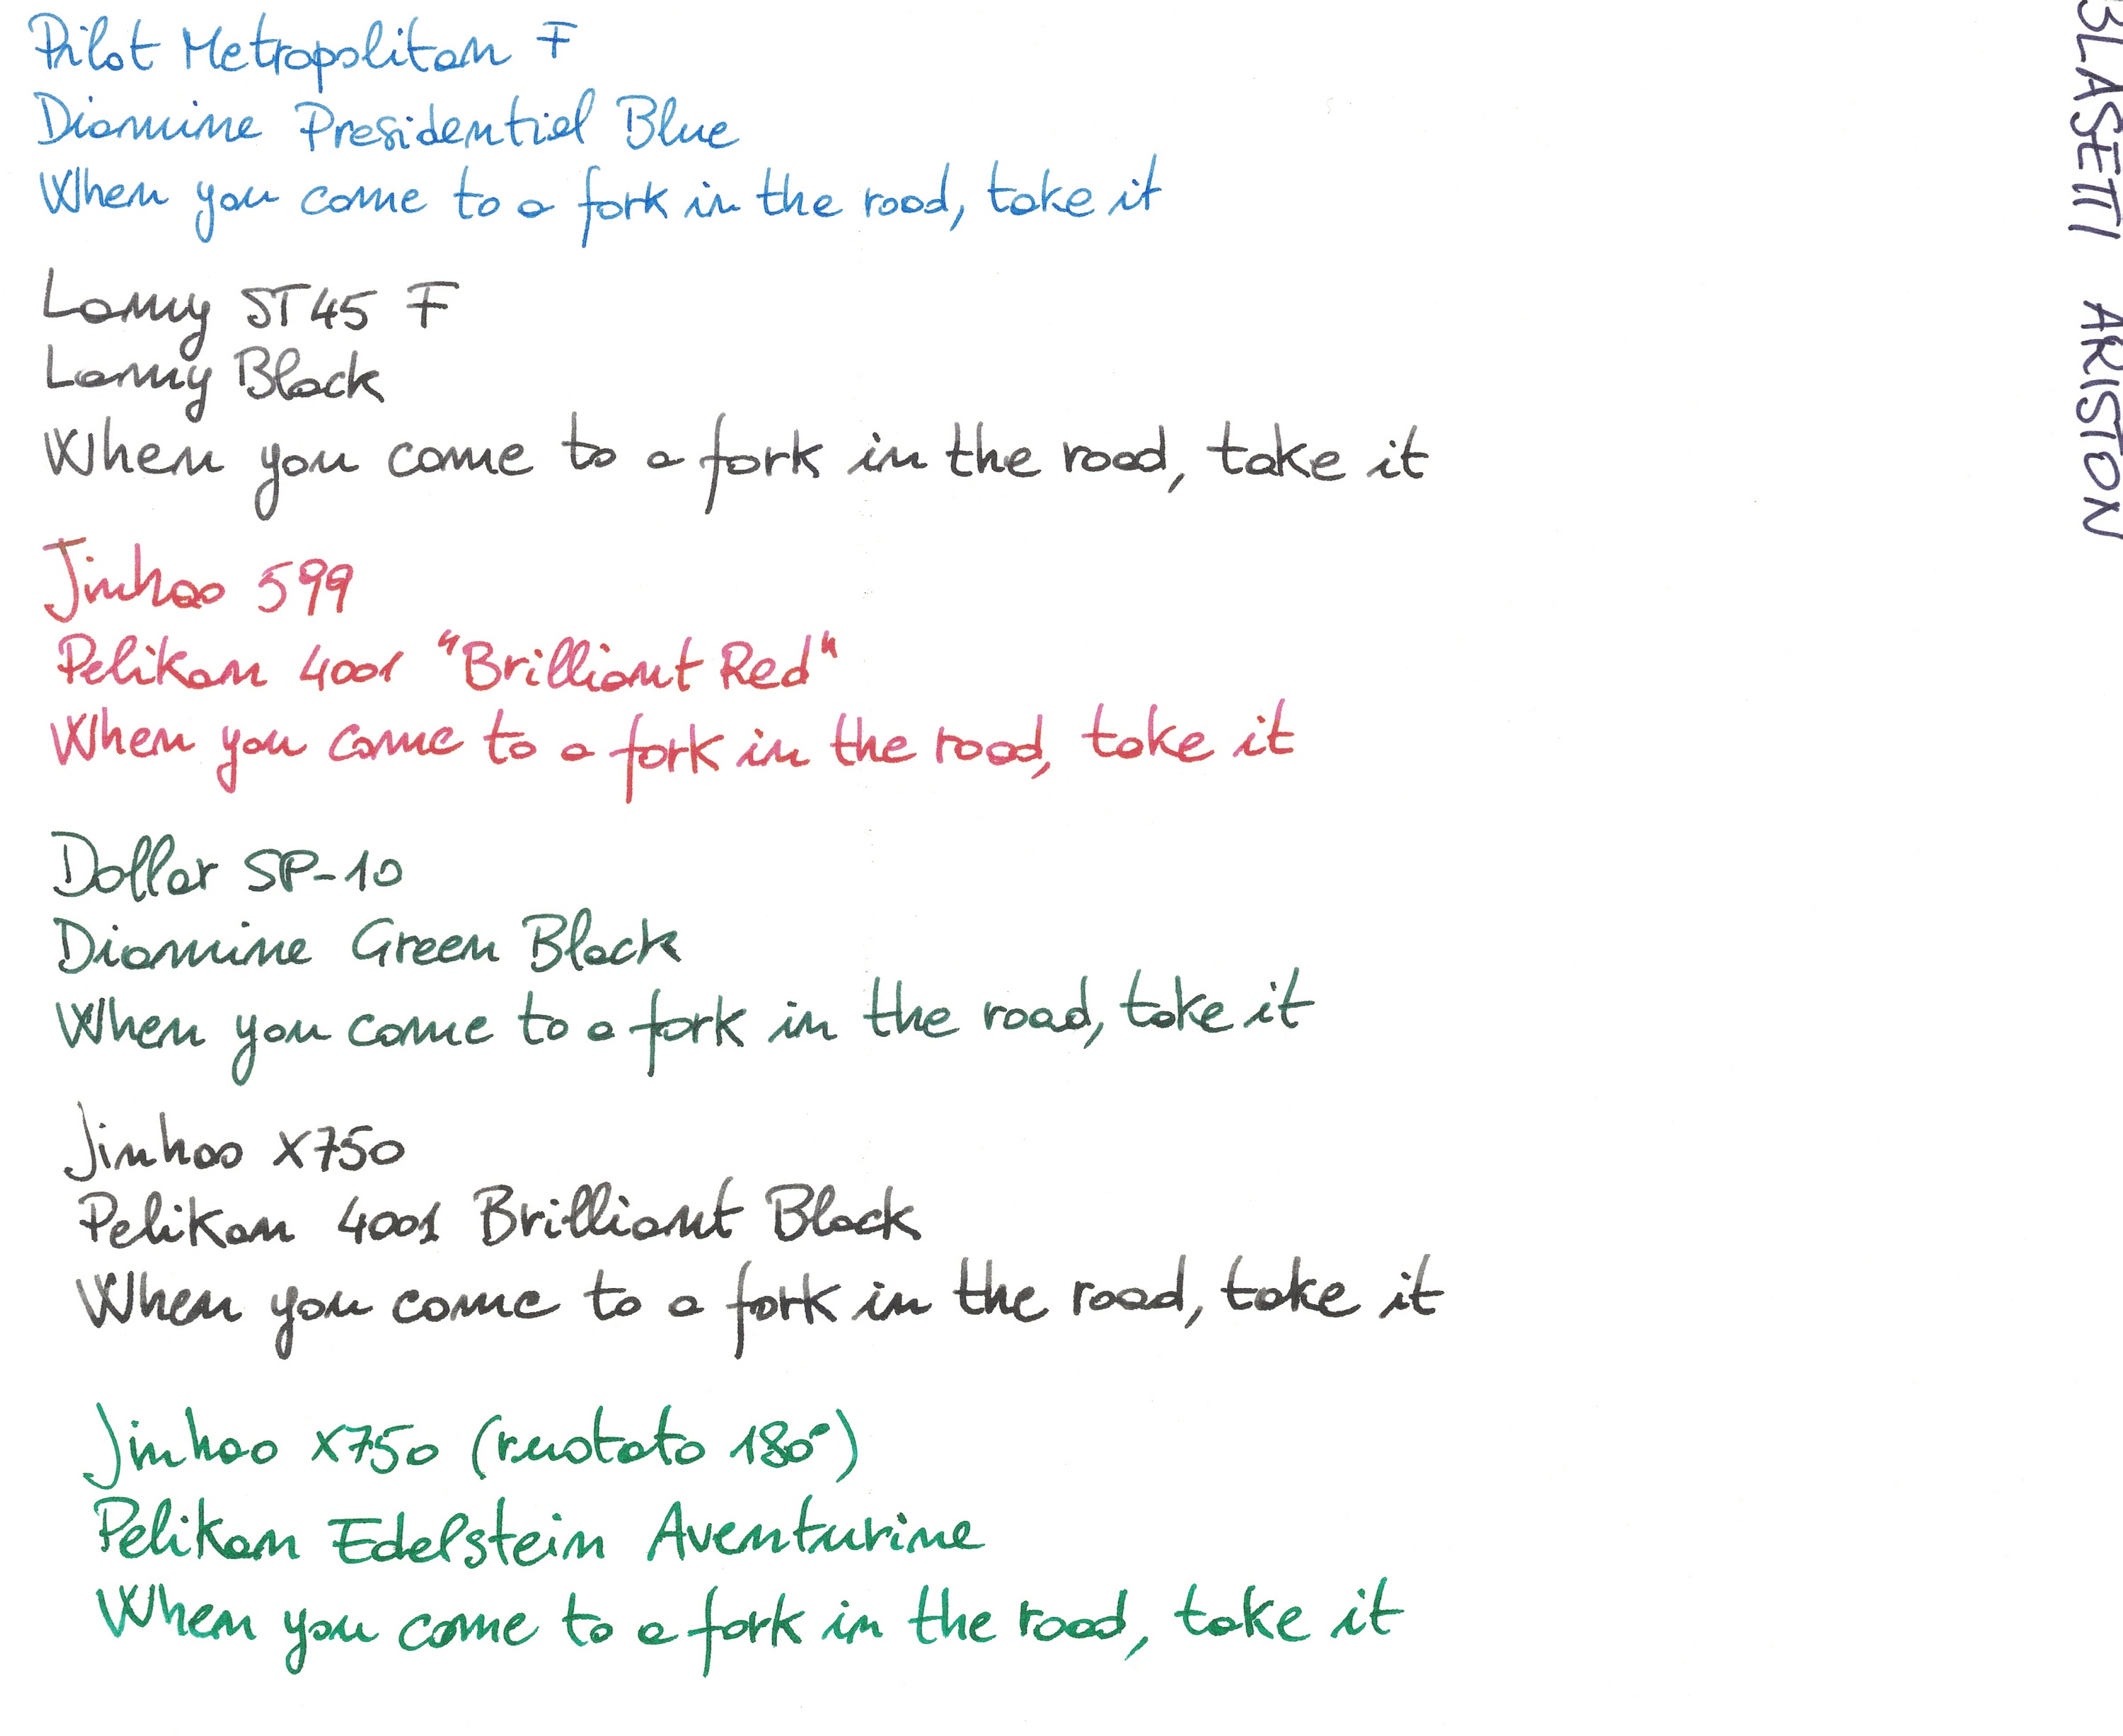 Pilot Metropolitan F
Diamine Presidential Blue
When you come to a fork in the road, take it
Lamy ST45 F
Lamy Black
When you come to a fork in the road, take it
Jinhao 599
Pelikan 4001 "Brilliant Red"
When you come to a fork in the road, take it
Dollar SP-10
Diamine Green Black
When you come to a fork in the road, take it
Jinhao X750
Pelikan 4001 Brilliant Black
When you come to a fork in the road, take it
Jinhao X750 (ruotato 180°)
Pelikan Edelstein Aventurine
When you come to a fork in the road, take it
BLASETTI ARISTON